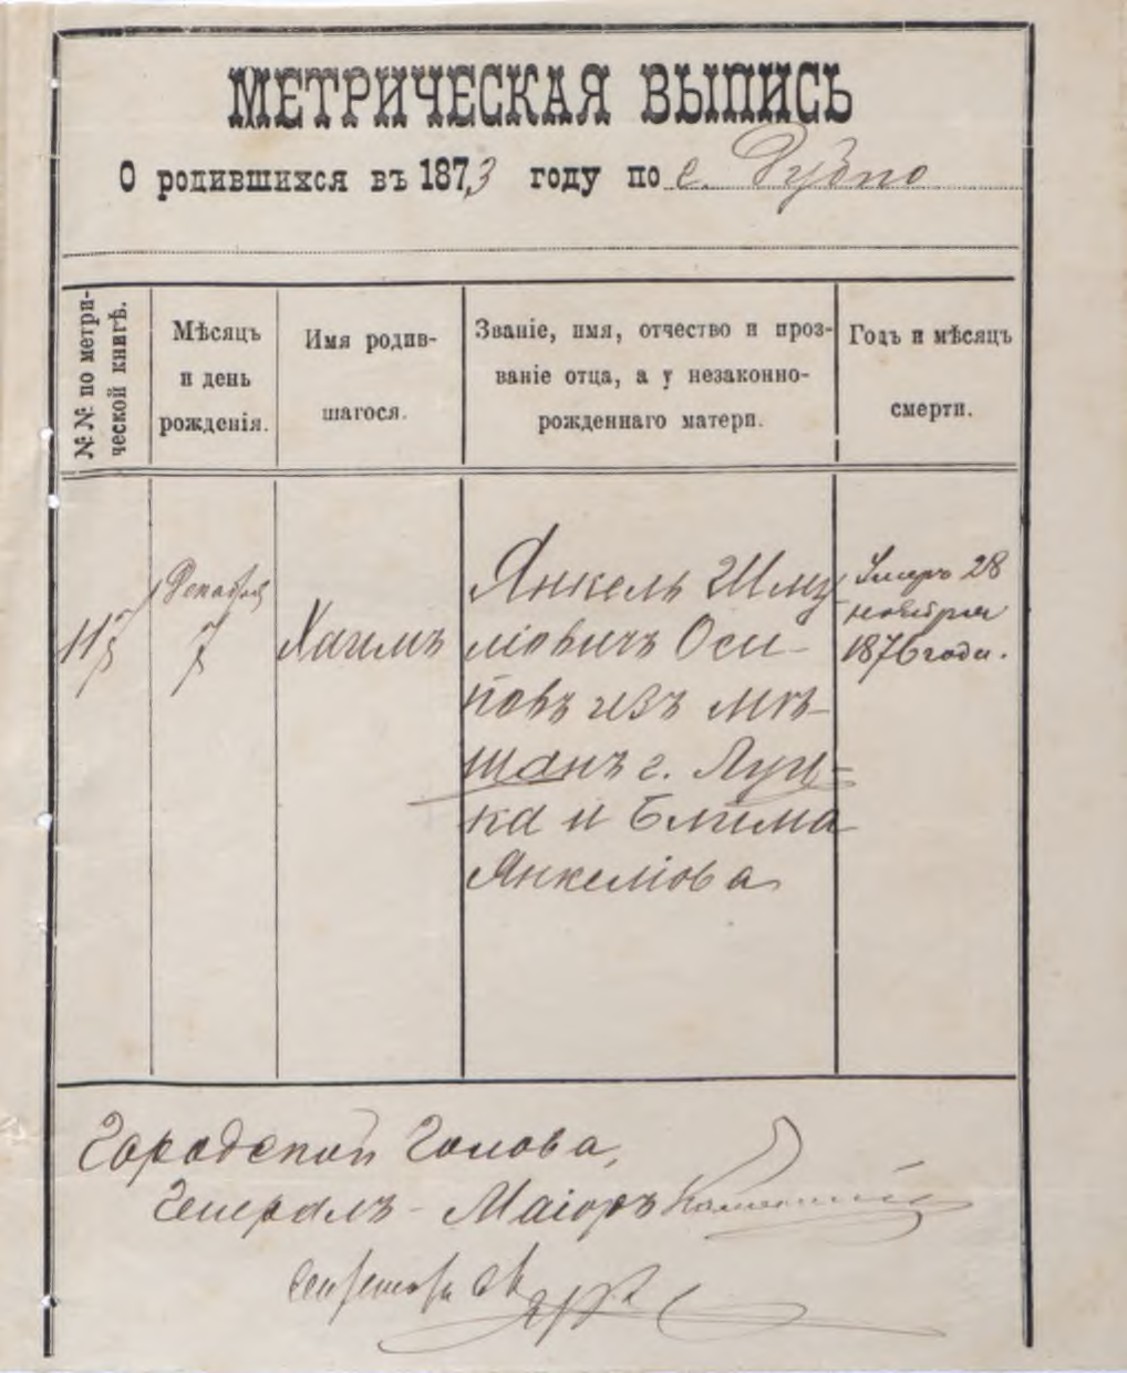 МЕТРИЧЕСКАЯ ВЫПИСЬ
О родившихся въ 1873 году по г. Дубно
№№ по метри-
ческой книгѣ.
Мѣсяцъ
и день
рожденія.
Имя родив-
шагося.
Званіе, имя, отчество и проз-
ваніе отца, а у незаконно-
рожденнаго матери.
Годъ и мѣсяцъ
смерти.
Декабря
7
Хаимъ
Янкель Шму
ліовичъ Оси-
повъ изъ мѣ-
щанъ г. Луц-
ка и Блима
Янкеліова
Умеръ 28
ноября
1876 года.
Городской Голова,
Генералъ-Маіоръ
Секретарь